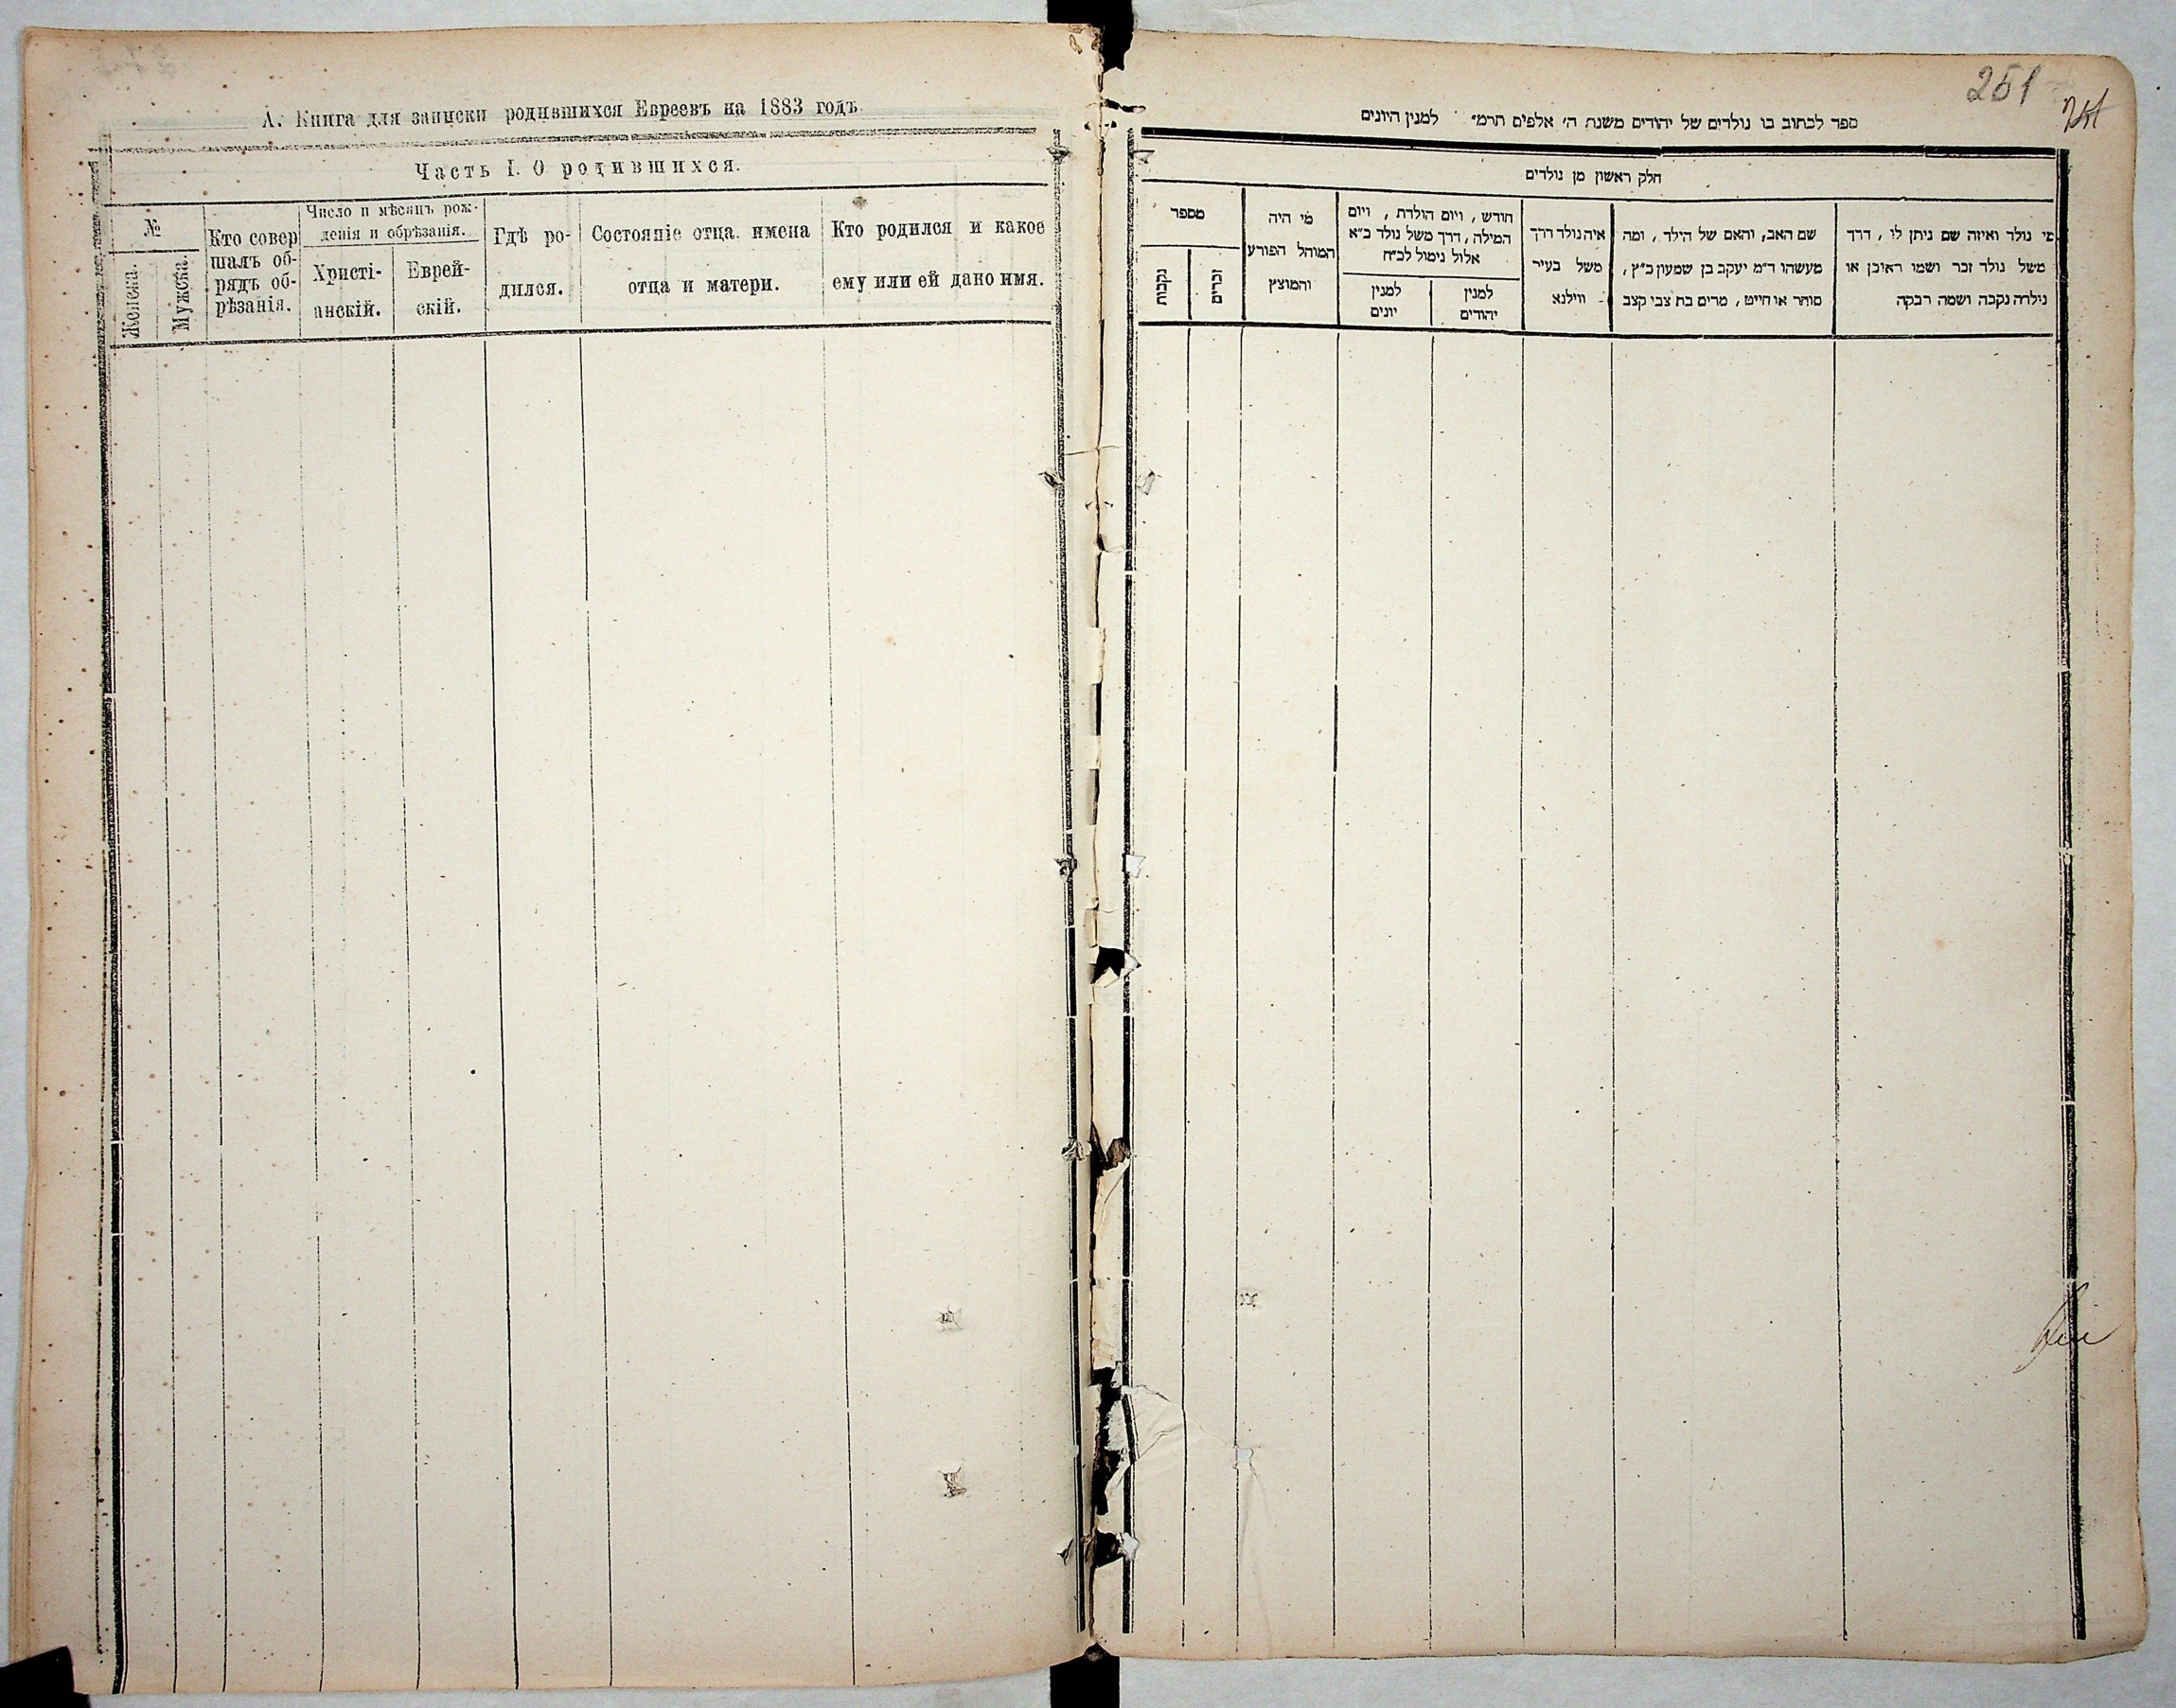 А. Книга для записки родившихся Евреевъ на 1883 годъ.
Часть I. О родившихся.
№
Женска.
Мужска.
Кто совер
шалъ об-
рядъ об-
рѣзанія.
Число и мѣсяцъ рож-
денія и обрѣзанія.
Христі-
анскій.
Еврей-
скій.
Гдѣ ро-
дился.
Состояніе отца имена
отца и матери.
Кто родился и какое
ему или ей дано имя.
251
251
ספר לכתוב בו נולדים של יהודים משנת ה׳ אלפים תרמ״ למנין היונים
חלק ראשון מן נולדים
מי נולד ואיזה שם ניתן לו, דרך
משל נולד זכר ושמו ראובן או
נולדה נקבה ושמה רבקה
שם האב, והאם של הילד, ומה
מעשהו ד״מ יעקב בן שמעון כ״ץ,
סוחר או חייט, מרים בת צבי קצב
איה נולד דרך
משל בעיר
ווילנא
חודש, ויום הולדת, ויום
המילה, דרך משל נולד כ״א
אלול נימול לכ״ח
למנין
יהודים
למנין
יונים
מי היה
המוהל הפורע
והמוצץ
מספר
זכרים
נקבות